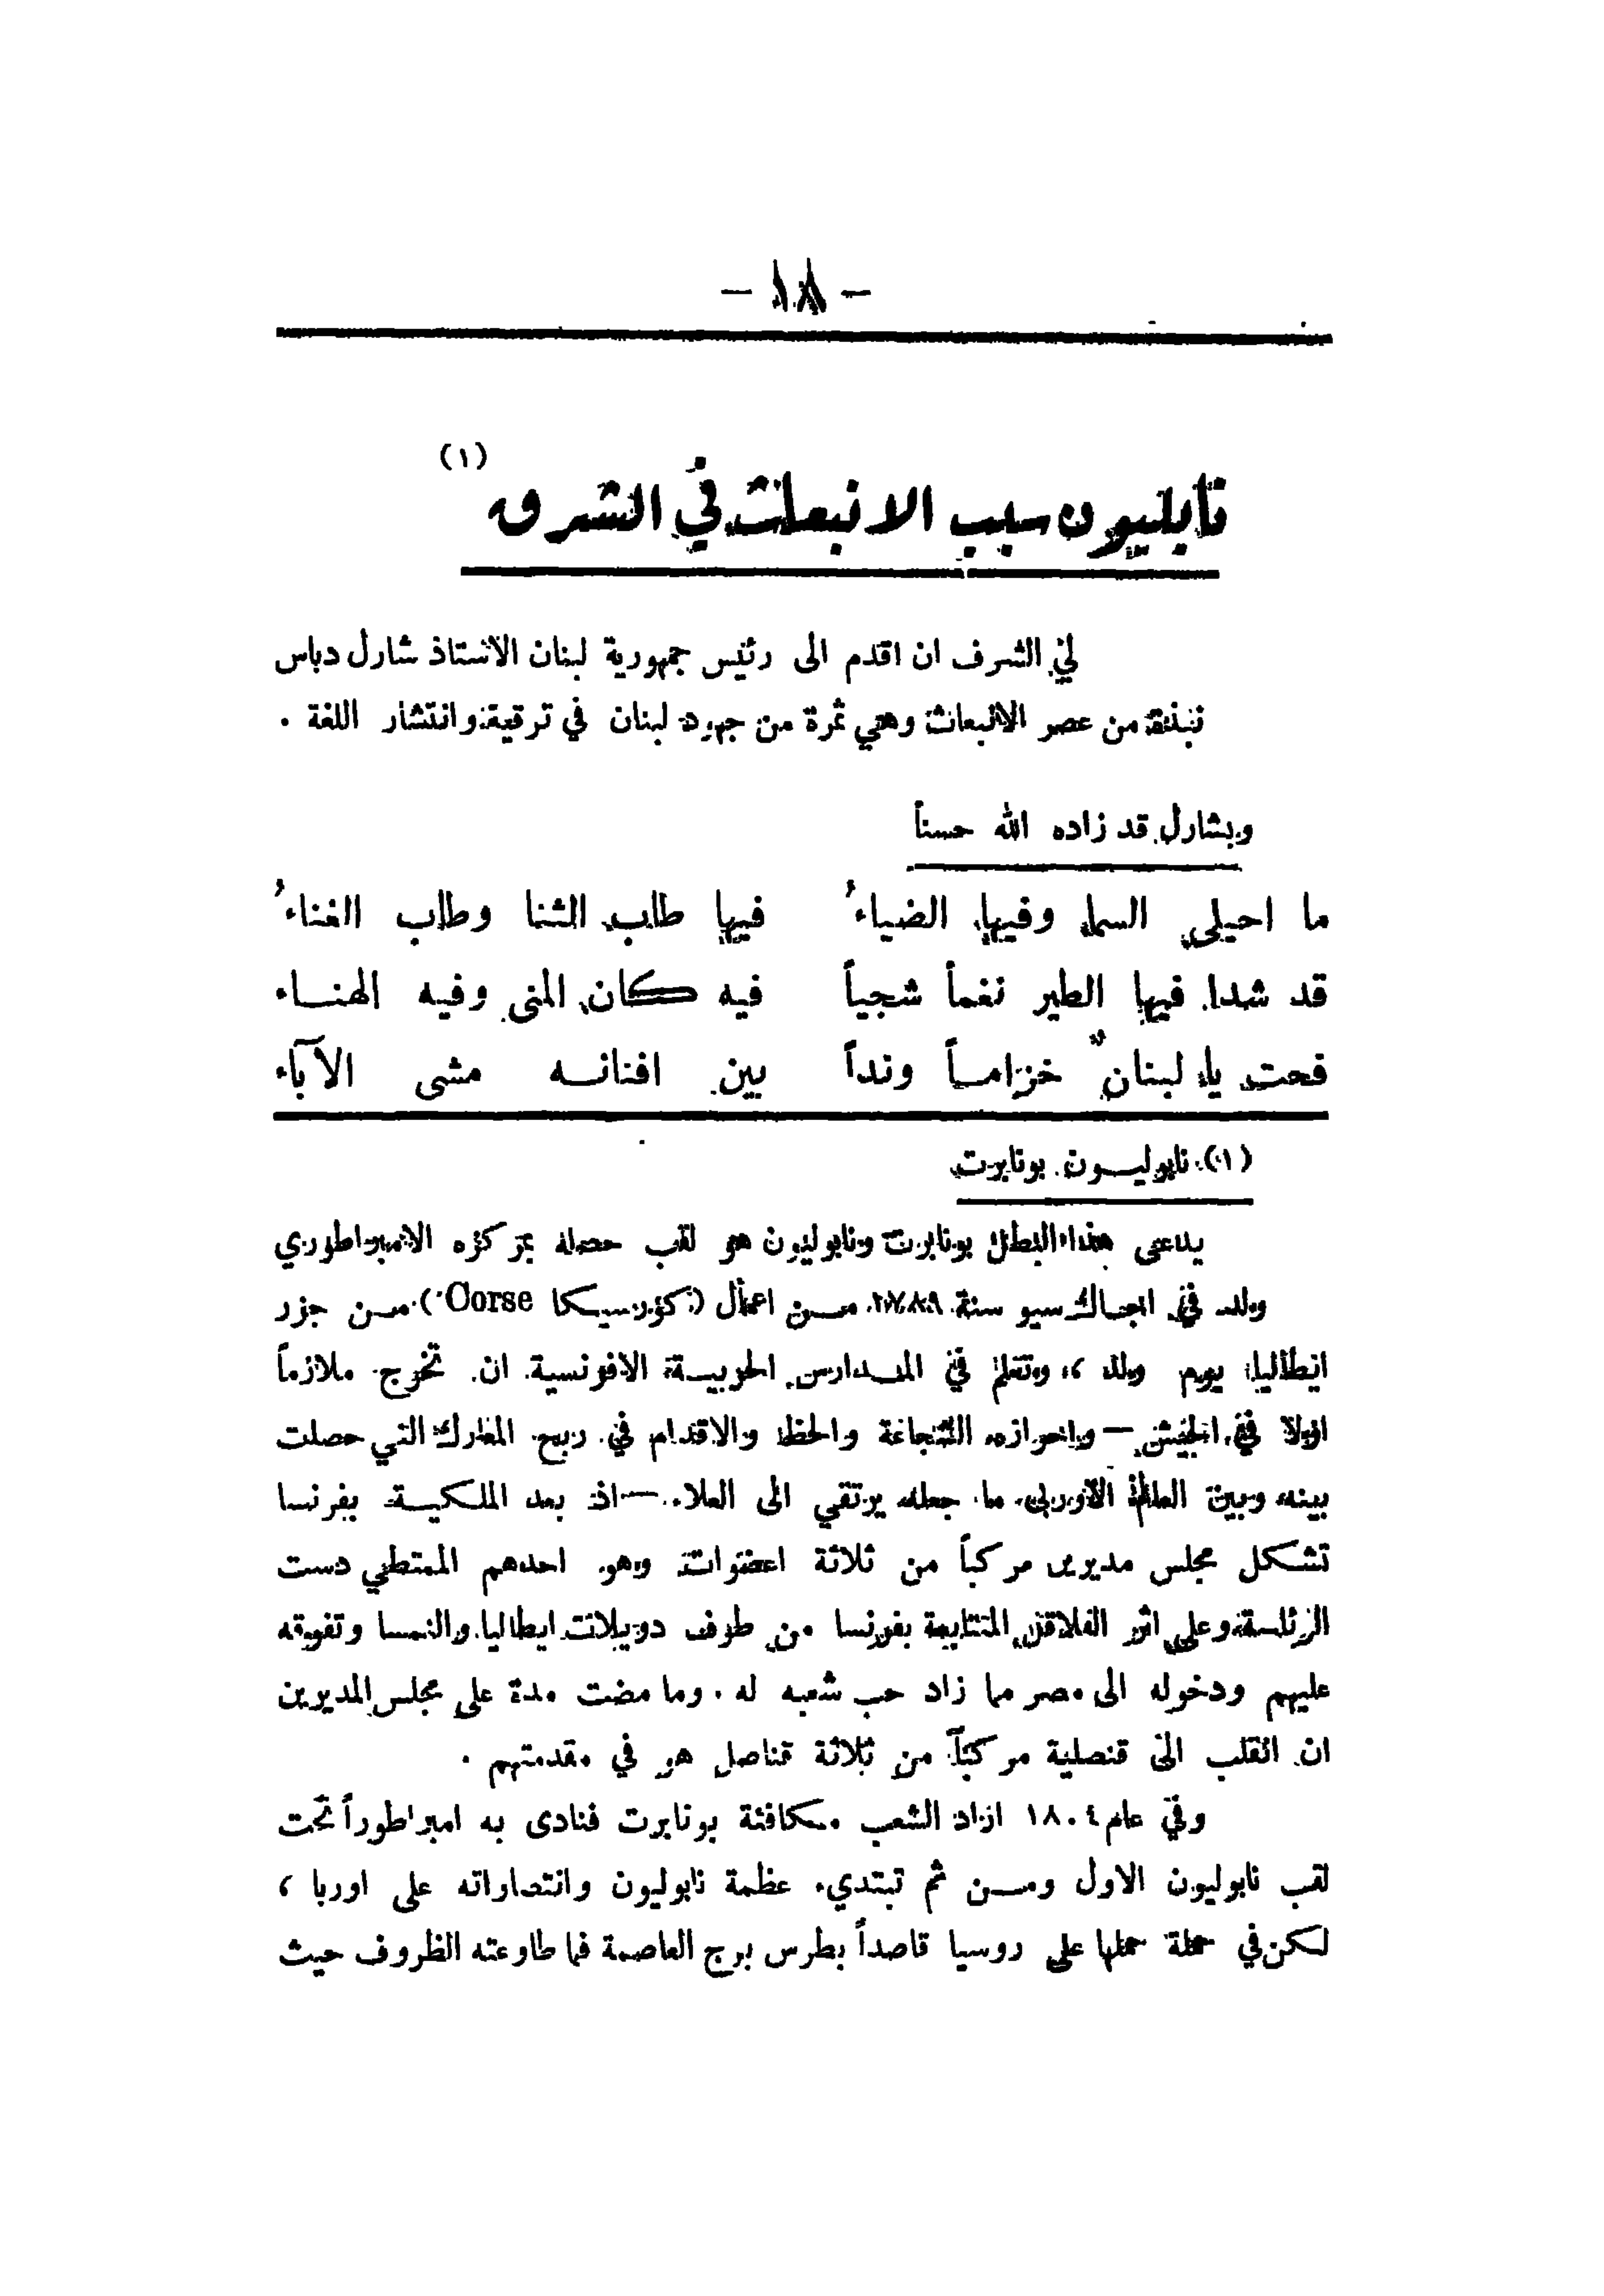 - ١٨ -
نابليون سبب الانبعاث في الشرق (١)
لي الشرف ان اقدم الى رئيس جمهورية لبنان الاستاذ شارل دباس
نبذة من عصر الانبعاث وهي ثمرة من جهود لبنان في ترقية وانتشار اللغة .
وبشارل قد زاده الله حسناً
ما احيلى السما وفيها الضياءُ فيها طاب الثنا وطاب الغناءُ
قد شدا فيها الطير نغماً شجياً فيه كان المنى وفيه الهناء
فحت يا لبنان خزاماً ونداً بين افنانه مشى الآباء
(١) نابوليون بونابرت
يدعى هذا البطل بونابرت ونابوليون هو لقب حصله بمركزه الامبراطوري
ولد في اجاكسيو سنة من اعمال (كورسيكا Corse) من جزر
ايطاليا يوم ولد ، وتعلم في المدارس الحربية الافرنسية ان تخرج ملازماً
اولا في الجيش — واحرازه الشجاعة والحظ والاقدام في ربح المعارك التي حصلت
بينه وبين العالم الاوربي ما جعله يرتقي الى العلاء — اذ بعد الملكية بفرنسا
تشكل مجلس مديرين مركباً من ثلاثة اعضوات وهو احدهم الممتطي دست
الرئاسة وعلى اثر القلاقل المتتابعة بفرنسا من طرف دويلات ايطاليا والنمسا وتفوقه
عليهم ودخوله الى مصر مما زاد حب شعبه له . وما مضت مدة على مجلس المديرين
ان انقلب الى قنصلية مركباً من ثلاثة قناصل هو في مقدمتهم .
وفي عام ١٨٠٤ اراد الشعب مكافئة بونابرت فنادى به امبراطوراً تحت
لقب نابوليون الاول ومن ثم تبتديء عظمة نابوليون وانتصاراته على اوربا ،
لكن في حملة حملها على روسيا قاصداً بطرس برج العاصمة فما طاوعته الظروف حيث